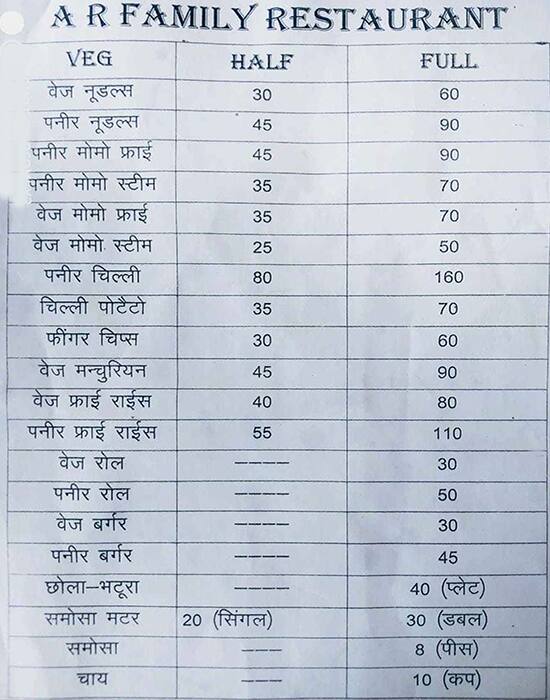 A R FAMILY RESTAURANT
VEG HALF FULL
वेज नूडल्स 30 60
पनीर नूडल्स 45 90
पनीर मोमो फ्राई 45 90
पनीर मोमो स्टीम 35 70
वेज मोमो फ्राई 35 70
वेज मोमो स्टीम 25 50
पनीर चिल्ली 80 160
चिल्ली पोटैटो 35 70
फींगर चिप्स 30 60
वेज मन्चुरियन 45 90
वेज फ्राई राईस 40 80
पनीर फ्राई राईस 55 110
वेज रोल ---- 30
पनीर रोल ---- 50
वेज बर्गर ---- 30
पनीर बर्गर ---- 45
छोला–भटूरा ---- 40 (प्लेट)
समोसा मटर 20 (सिंगल) 30 (डबल)
समोसा --- 8 (पीस)
चाय --- 10 (कप)